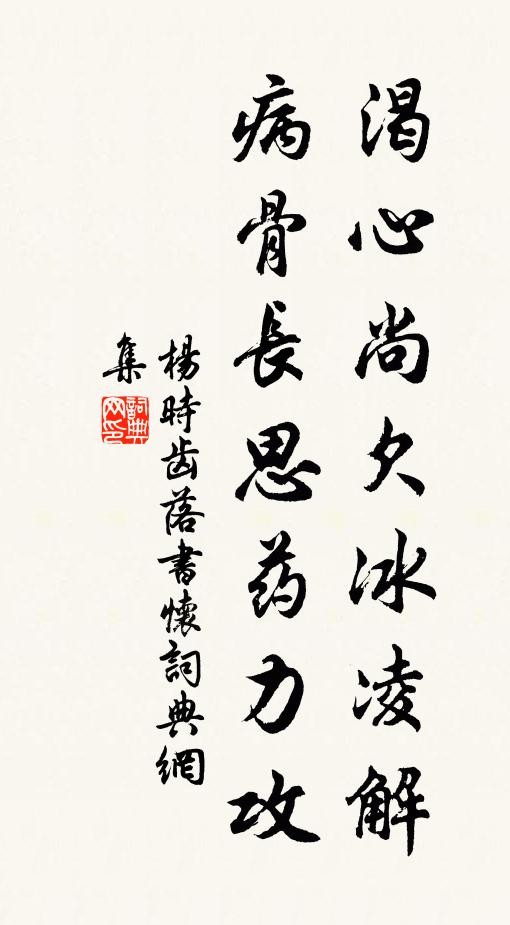 渴心尚欠冰凌解
病骨長思药力攻
楊時齿落書懷詞典網
集
詞典
网印